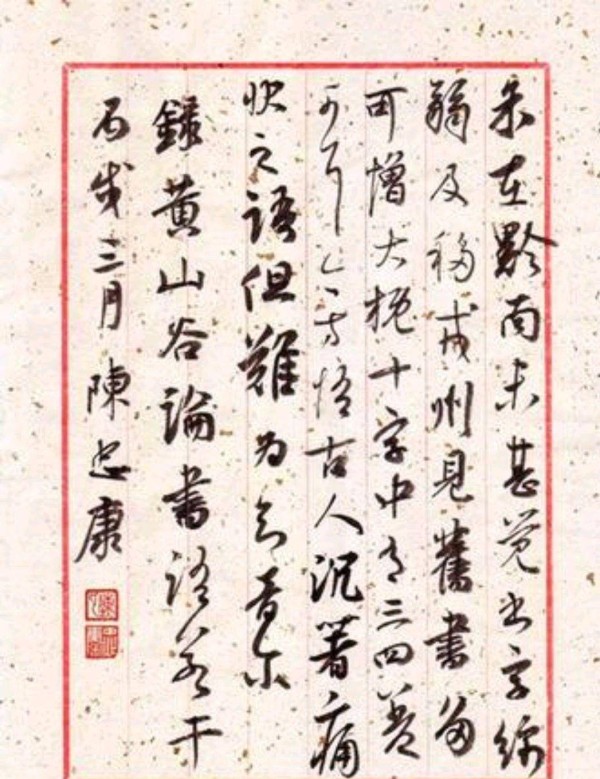 余在黔南未甚覺书字綿
弱及移戎州見舊書多
可憎大概十字中有三四差
可耳今方悟古人沉著痛
快之語但難為知音尔
錄黃山谷論書語若干
丙戌三月陳忠康